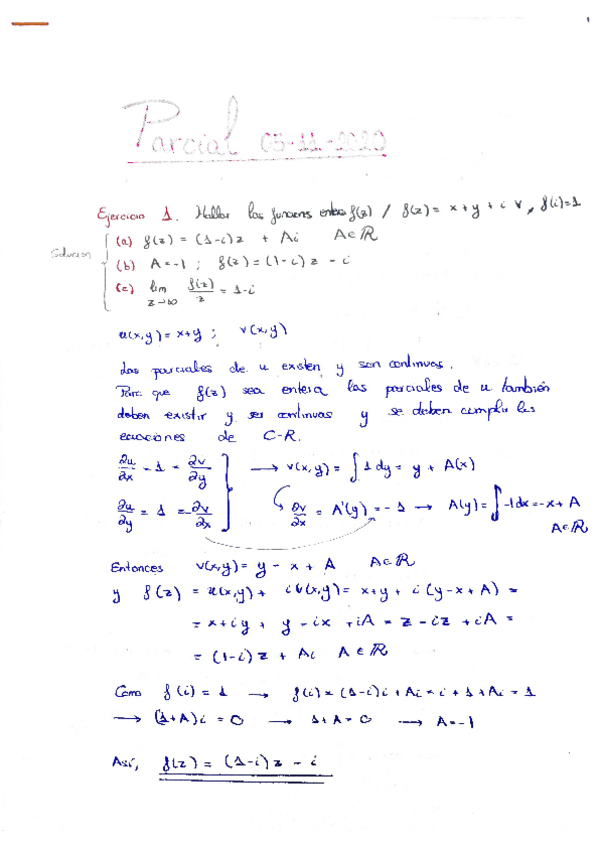 Parcial 05-11-2020
Ejercicio 1. Hallar las funciones enteras f(z) / f(z) = x + y + i v, f(i)=1
Solución
(a) f(z) = (1-i)z + Ai A∈ℝ
(b) A = -1 ; f(z) = (1-i)z - i
(c) lim z→∞ f(z)/z = 1-i
u(x,y) = x+y ; v(x,y)
Las parciales de u existen y son continuas.
Para que f(z) sea entera las parciales de u también
deben existir y ser continuas y se deben cumplir las
ecuaciones de C-R.
∂u/∂x = 1 = ∂v/∂y → v(x,y) = ∫ 1 dy = y + A(x)
∂u/∂y = 1 = -∂v/∂x ∂v/∂x = A'(y) = -1 → A(y) = ∫ -1dx = -x + A
A∈ℝ
Entonces v(x,y) = y - x + A A∈ℝ
y f(z) = u(x,y) + i v(x,y) = x+y + i (y-x+A) =
= x+iy + y - ix + iA = z - iz + iA =
= (1-i)z + Ai A∈ℝ
Como f(i) = 1 → f(i) = (1-i)i + Ai = i + 1 + Ai = 1
→ (1+A)i = 0 → 1+A = 0 → A=-1
Así, f(z) = (1-i)z - i